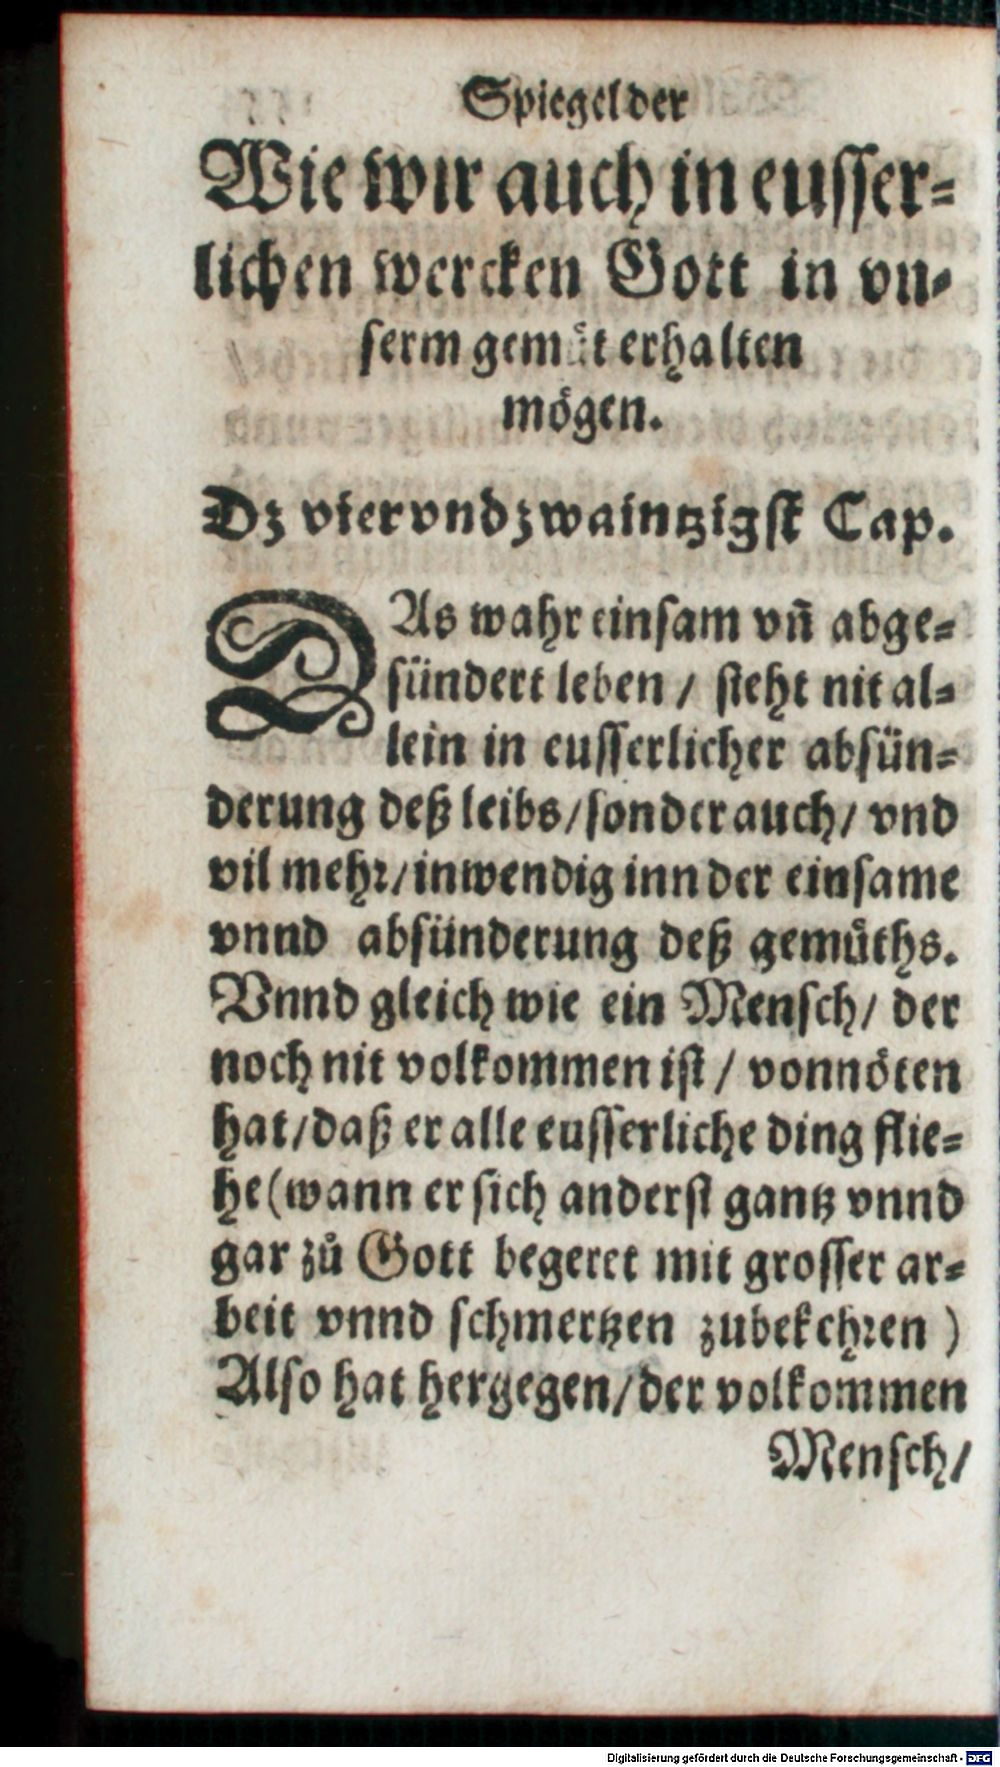 Spiegel der
Wie wir auch in eusser-
lichen wercken Gott in vn-
serm gemuͤt erhalten
moͤgen.
Dz vier vnd zwaintzigst Cap.
DAs wahr einsam vñ abge-
sündert leben / steht nit al-
lein in eusserlicher absün-
derung deß leibs / sonder auch / vnd
vil mehr / inwendig inn der einsame
vnnd absünderung deß gemuͤths.
Vnnd gleich wie ein Mensch / der
noch nit volkommen ist / vonnoͤten
hat / daß er alle eusserliche ding flie-
he (wann er sich anderst gantz vnnd
gar zuͦ Gott begeret mit grosser ar-
beit vnnd schmertzen zubekehren )
Also hat hergegen / der volkommen
Mensch /
Digitalisierung gefördert durch die Deutsche Forschungsgemeinschaft - DFG